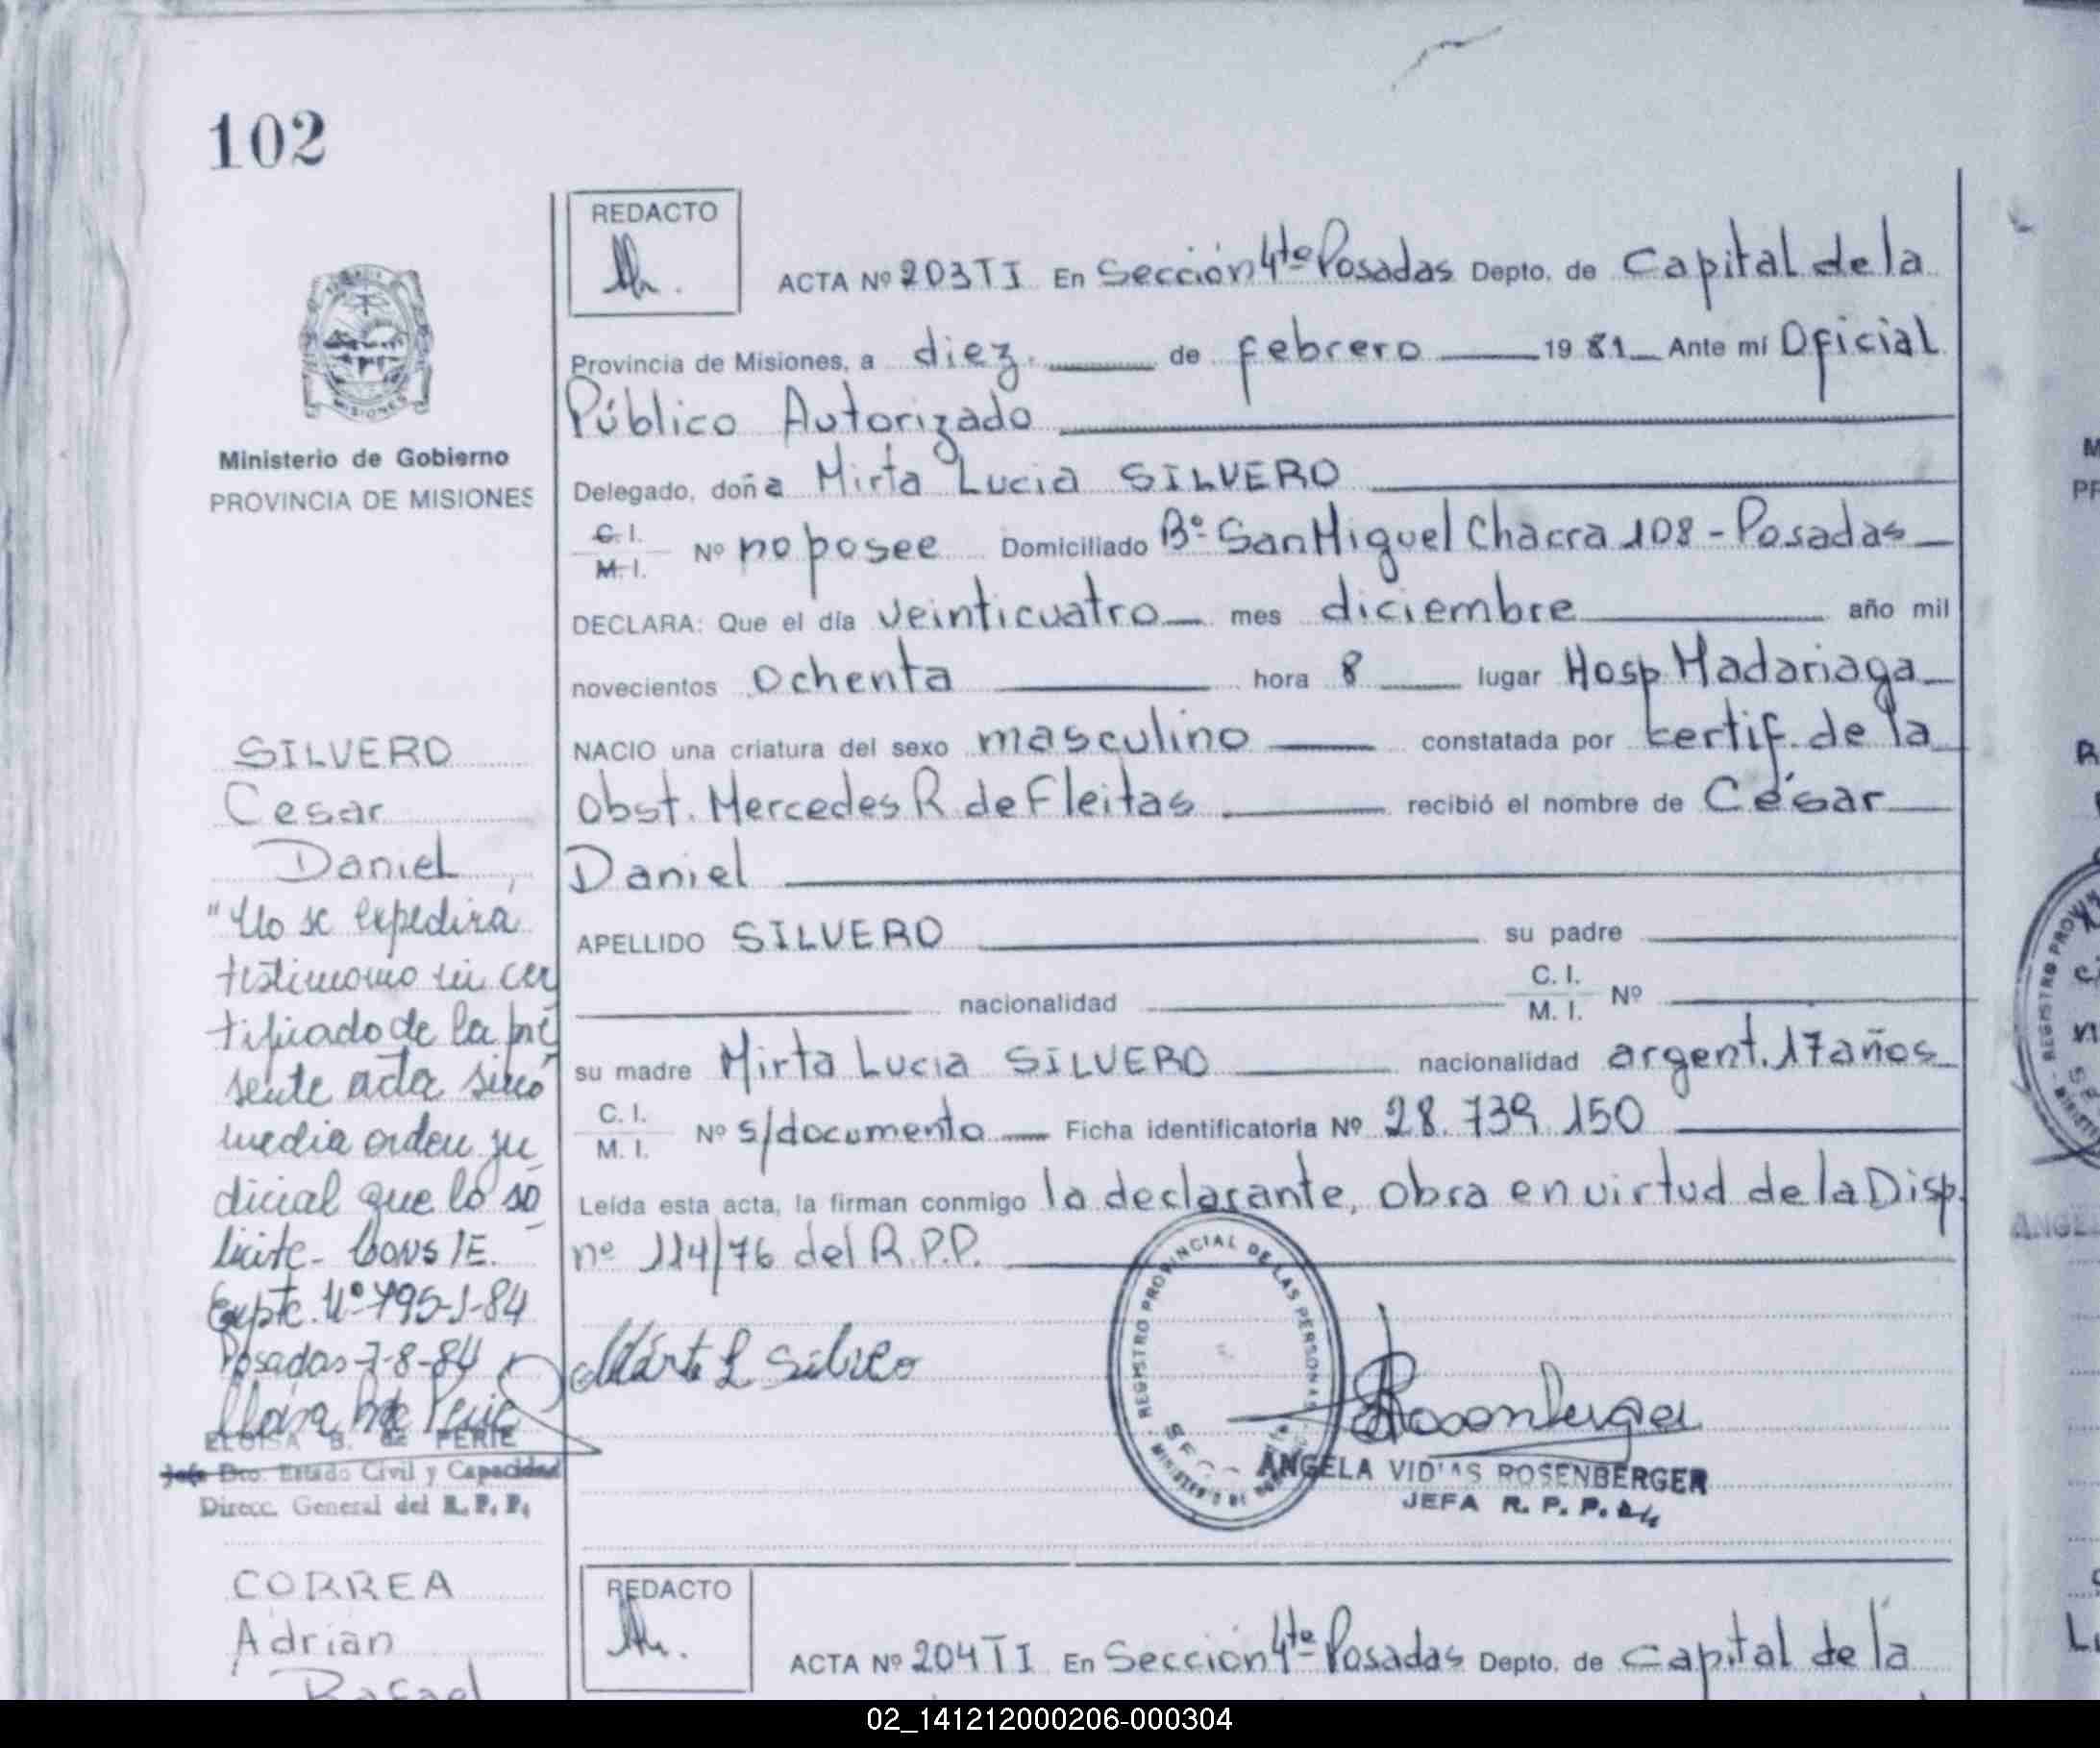 102
REDACTO
ACTA Nº 203 T I En Sección 4ta Posadas Depto. de Capital de la
Provincia de Misiones, a diez de febrero 19 81 Ante mí Oficial
Público Autorizado
Delegado, doña Mirta Lucia SILVERO
C. I.
M. I.
Nº no posee Domiciliado Bº San Miguel Chacra 108 - Posadas
DECLARA: Que el día veinticuatro mes diciembre año mil
novecientos ochenta hora 8 lugar Hosp Madariaga
NACIO una criatura del sexo masculino constatada por certif. de la
Obst. Mercedes R de Fleitas recibió el nombre de César
Daniel
APELLIDO SILVERO su padre
nacionalidad C. I. M. I. Nº
su madre Mirta Lucia SILVERO nacionalidad argent. 17 años
C. I.
M. I.
Nº s/documento Ficha identificatoria Nº 28.739.150
Leída esta acta, la firman conmigo la declarante, obra en virtud de la Disp.
nº 114/76 del R.P.P.
REGISTRO PROVINCIAL DE LAS PERSONAS
ANGELA ROSENBERGER
JEFA R. P. P.
MISIONES
Ministerio de Gobierno
PROVINCIA DE MISIONES
SILVERO
Cesar
Daniel
"No se expedira
testimonio ni cer
tificado de la pre
sente acta sino
media orden ju
dicial que lo so
licite- CONSTE.
Expte. Nº 795-J-84
Posadas 7-8-84
ELOISA B. de PERIE
Jefe Dto. Estado Civil y Capacidad
Direcc. General del R. P. P.
CORREA
Adrian
Rafael
REDACTO
ACTA Nº 204 T I En Sección 4ta Posadas Depto. de Capital de la
02_141212000206-000304